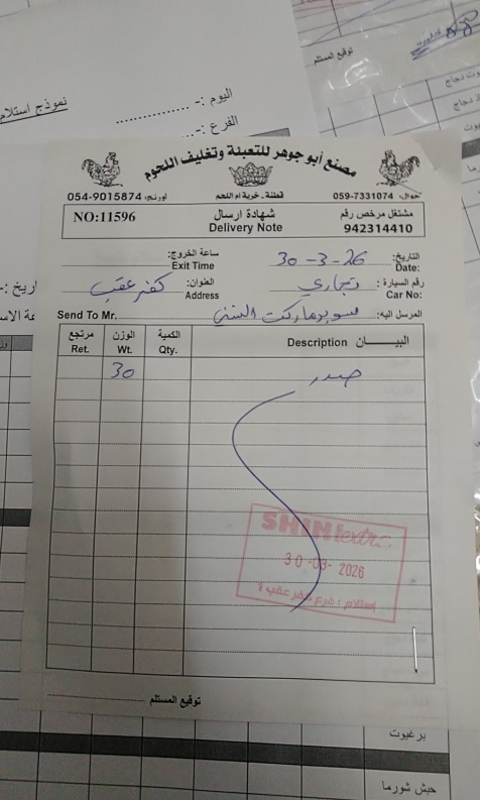 توقيع المستلم
اليوم :- ................
نموذج استلام
الفرع :-
مصنع أبو جوهر للتعبئة وتغليف اللحوم
054-9015874 اورنج:
قطنة - خربة ام اللحم
جوال: 059-7331074
NO:11596
شهادة ارسال
Delivery Note
مشتغل مرخص رقم
942314410
ساعة الخروج:
Exit Time
التاريخ: 30-3-26
Date:
العنوان: كفر عقب
Address
رقم السيارة : تجاري
Car No:
Send To Mr. سوبرماركت الشني المرسل اليه:
مرتجع Ret.
الوزن Wt.
الكمية Qty.
Description البيـــــان
30 صدر
SHINI extra
30-03-2026
استلام : فرع كفر عقب
توقيع المستلم
برغيوت
حبش شورما